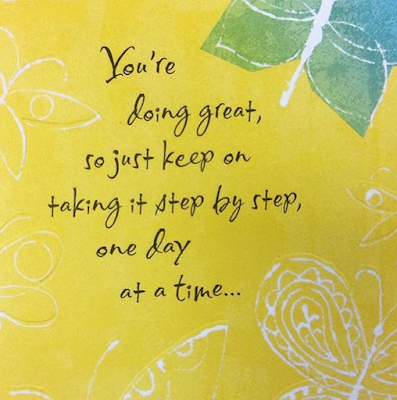 You're
doing great,
so just keep on
taking it step by step,
one day
at a time...